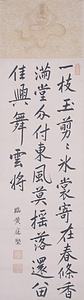 一枝玉剪〻氷裳寄在春條香
滿堂分付東風莫搖落還留
佳興舞雲將
臨黄庭堅